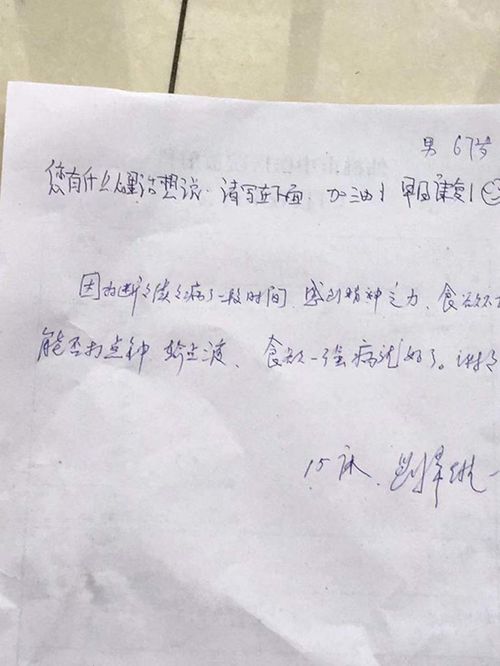 男 67岁
您有什么心里话想说，请写在下面 加油！早日康复！
因为断断续续病了一段时间，感到精神乏力、食欲不
能否打点针 输点液、食欲一强病就好了。谢
15床